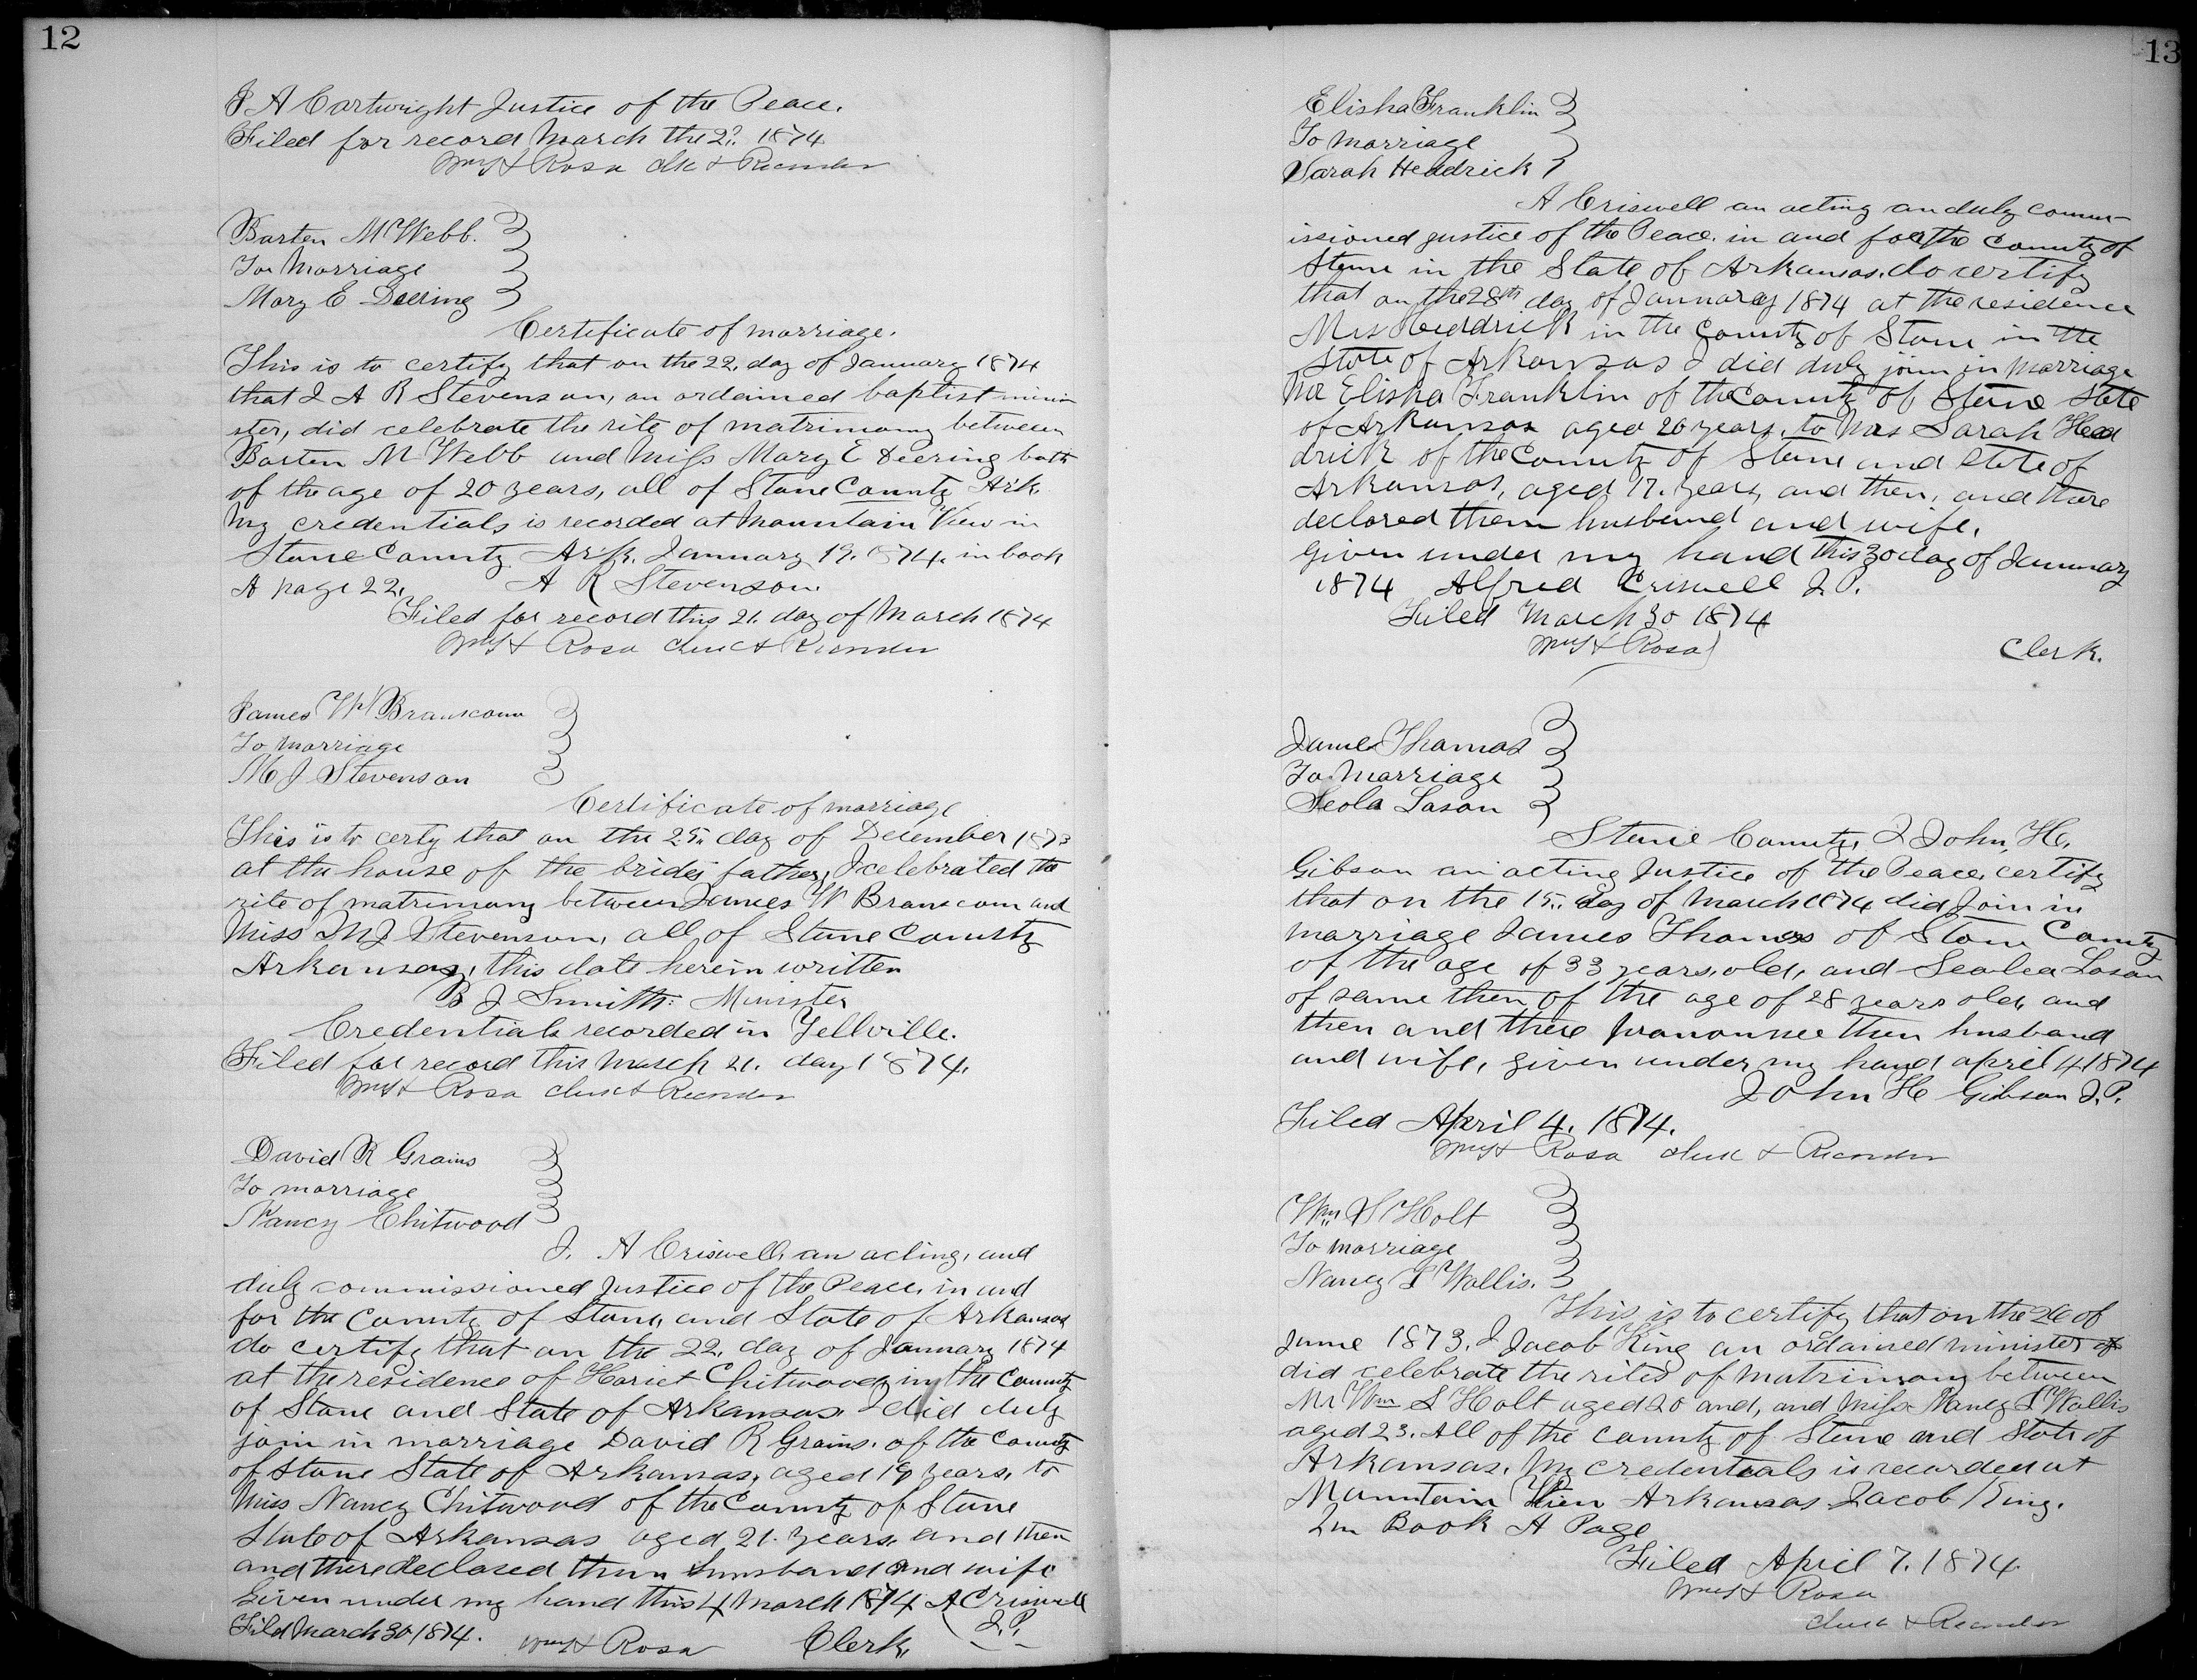 12
J A Cartwright Justice of the Peace.
Filed for record March the 2? 1874
Wm H Rosa clk & Recorder
Barten M Webb.
To Marriage
Mary E Deering
Certificate of marriage.
This is to certify that on the 22. day of January 1874
that I A R Stevenson, an ordained baptist mini-
ster, did celebrate the rite of matrimony between
Barten M Webb and Miss Mary E Deering both
of the age of 20 years, all of Stone County Ark.
My credentials is recorded at Mountain View in
Stone County Ark. January 19. 1874. in book
A page 22. A R Stevenson.
Filed for record this 21. day of March 1874
Wm H Rosa Clerk & Recorder
James W Branscom
To Marriage
M J Stevenson
Certificate of marriage
This is to certy that on the 25. day of December 1873
at the house of the brides father, I celebrated the
rite of matrimony between James W Branscom and
Miss M J Stevenson, all of Stone County
Arkansas, this date herein written
B J Smith. Minister
Credentials recorded in Yellville.
Filed for record this March 21. day 1874.
Wm H Rosa Clerk & Recorder
David R Grains
To marriage
Nancy Chitwood
I. A Criswell, an acting, and
duly commissioned Justice of the Peace, in and
for the County of Stone, and State of Arkansas
do certify that on the 22. day of January 1874
at the residence of Hariet Chitwood in the County
of Stone and State of Arkansas I did duly
join in marriage David R Grains. of the County
of Stone State of Arkansas, aged 19 years, to
Miss Nancy Chitwood of the County of Stone
State of Arkansas aged 21. years, and then
and there declared them husband and wife
Given under my hand this 4 March 1874 A Criswell
J. P.
Filed March 30 1874. Wm H Rosa Clerk,
13
Elisha Franklin
To Marriage
Sarah Headrick
A Criswell an acting an duly comm-
issioned justice of the Peace. in and for the County of
Stone in the State of Arkansas. do certify
that on the 28th day of January 1874 at the residence
Mrs Headrick in the County of Stone in the
State of Arkansas I did duly join in marriage
Mr Elisha Franklin of the County of Stone State
of Arkansas aged 20 years, to Mrs Sarah Head
drick of the County of Stone and State of
Arkansas, aged 17. years, and then, and there
declared them husband and wife.
Given under my hand this 30 day of January
1874 Alfred Criswell J. P.
Filed March 30 1874
Wm H Rosa Clerk.
James Thomas
To Marriage
Seola Lason
Stone County, I John H.
Gibson an acting Justice of the Peace, certify
that on the 15.. day of March 1874 did Join in
marriage James Thomas of Stone County
of the age of 33 years, old, and Seolea Lason
of same then of the age of 28 years old, and
then and there pronounce them husband
and wife, given under my hand april 4 1874
John H Gibson J. P.
Filed April 4. 1874.
Wm H Rosa Clerk & Recorder
Wm S Holt
To Marriage
Nancy S Wallis.
This is to certify that on the 26 of
June 1873. I Jacob King an ordained minister of
did celebrate the rites of matrimony between
Mr Wm S Holt aged 20 and, and Miss Nancy S Wallis
aged 23. All of the county of Stone and State of
Arkansas. My credentials is recorded at
Mountain View Arkansas Jacob King.
In Book A Page
Filed April 7. 1874.
Wm H Rosa
Clerk & Recorder